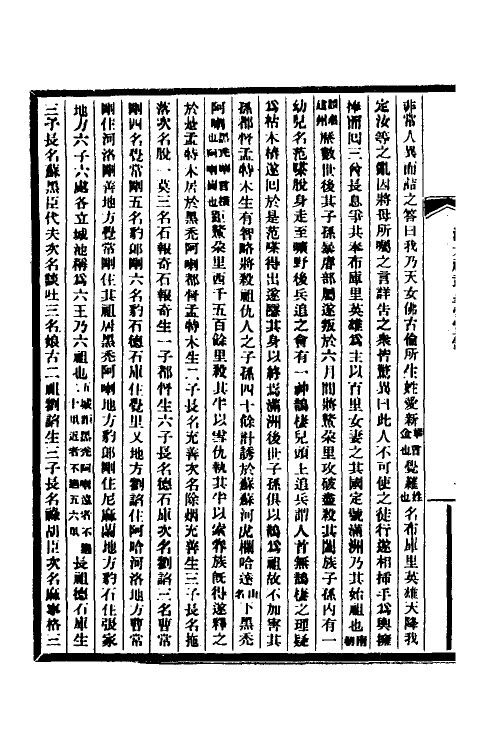 非常人異而詰之答曰我乃天女佛古倫所生姓愛新華言金也覺羅姓也名布庫里英雄天降我
定汝等之亂因將母所囑之言詳告之衆皆驚異曰此人不可使之徒行遂相插手爲輿擁
捧而回三酋長息爭共奉布庫里英雄爲主以百里女妻之其國定號滿洲乃其始祖也南朝
誤名建州歷數世後其子孫暴虐部屬遂叛於六月間將鰲朶里攻破盡殺其闔族子孫內有一
幼兒名范嗏脫身走至曠野後兵追之會有一神鵲棲兒頭上追兵謂人首無鵲棲之理疑
爲枯木樁遂回於是范嗏得出遂隱其身以終焉滿洲後世子孫俱以鵲爲祖故不加害其
孫都督孟特木生有智略將殺祖仇人之子孫四十餘計誘於蘇蘇河虎欄哈達山名下黑禿
阿喇黑禿華言橫也阿喇崗也距鰲朶里西千五百餘里殺其半以雪仇執其半以索眷族既得遂釋之
於是孟特木居於黑禿阿喇都督孟特木生二子長名充善次名除烟充善生三子長名拖
落次名脫一莫三名石報奇石報奇生一子都督生六子長名德石庫次名劉諂三名曹常
剛四名覺常剛五名豹郎剛六名豹石德石庫住覺里义地方劉諂住阿哈河洛地方曹常
剛住河洛剛善地方覺常剛住其祖居黑禿阿喇地方豹郎剛住尼麻蘭地方豹石住張家
地方六子六處各立城池稱爲六王乃六祖也五城距黑禿阿喇遠者不過二十里近者不過五六里長祖德石庫生
三子長名蘇黑臣代夫次名談吐三名娘古二祖劉諂生三子長名祿胡臣次名麻寧格三